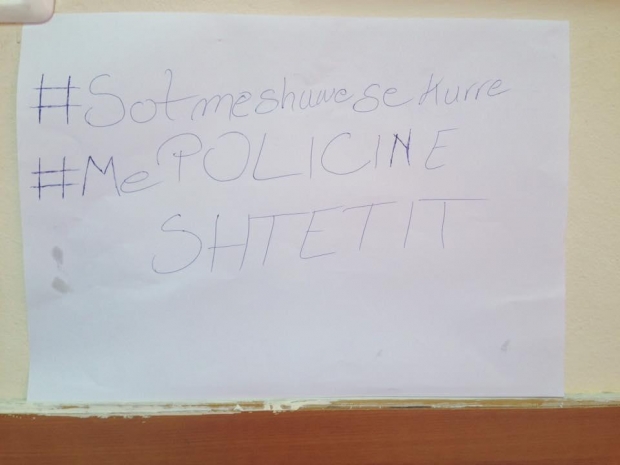 #Sot me shuwe se kurre
#Me POLICINE
SHTETIT